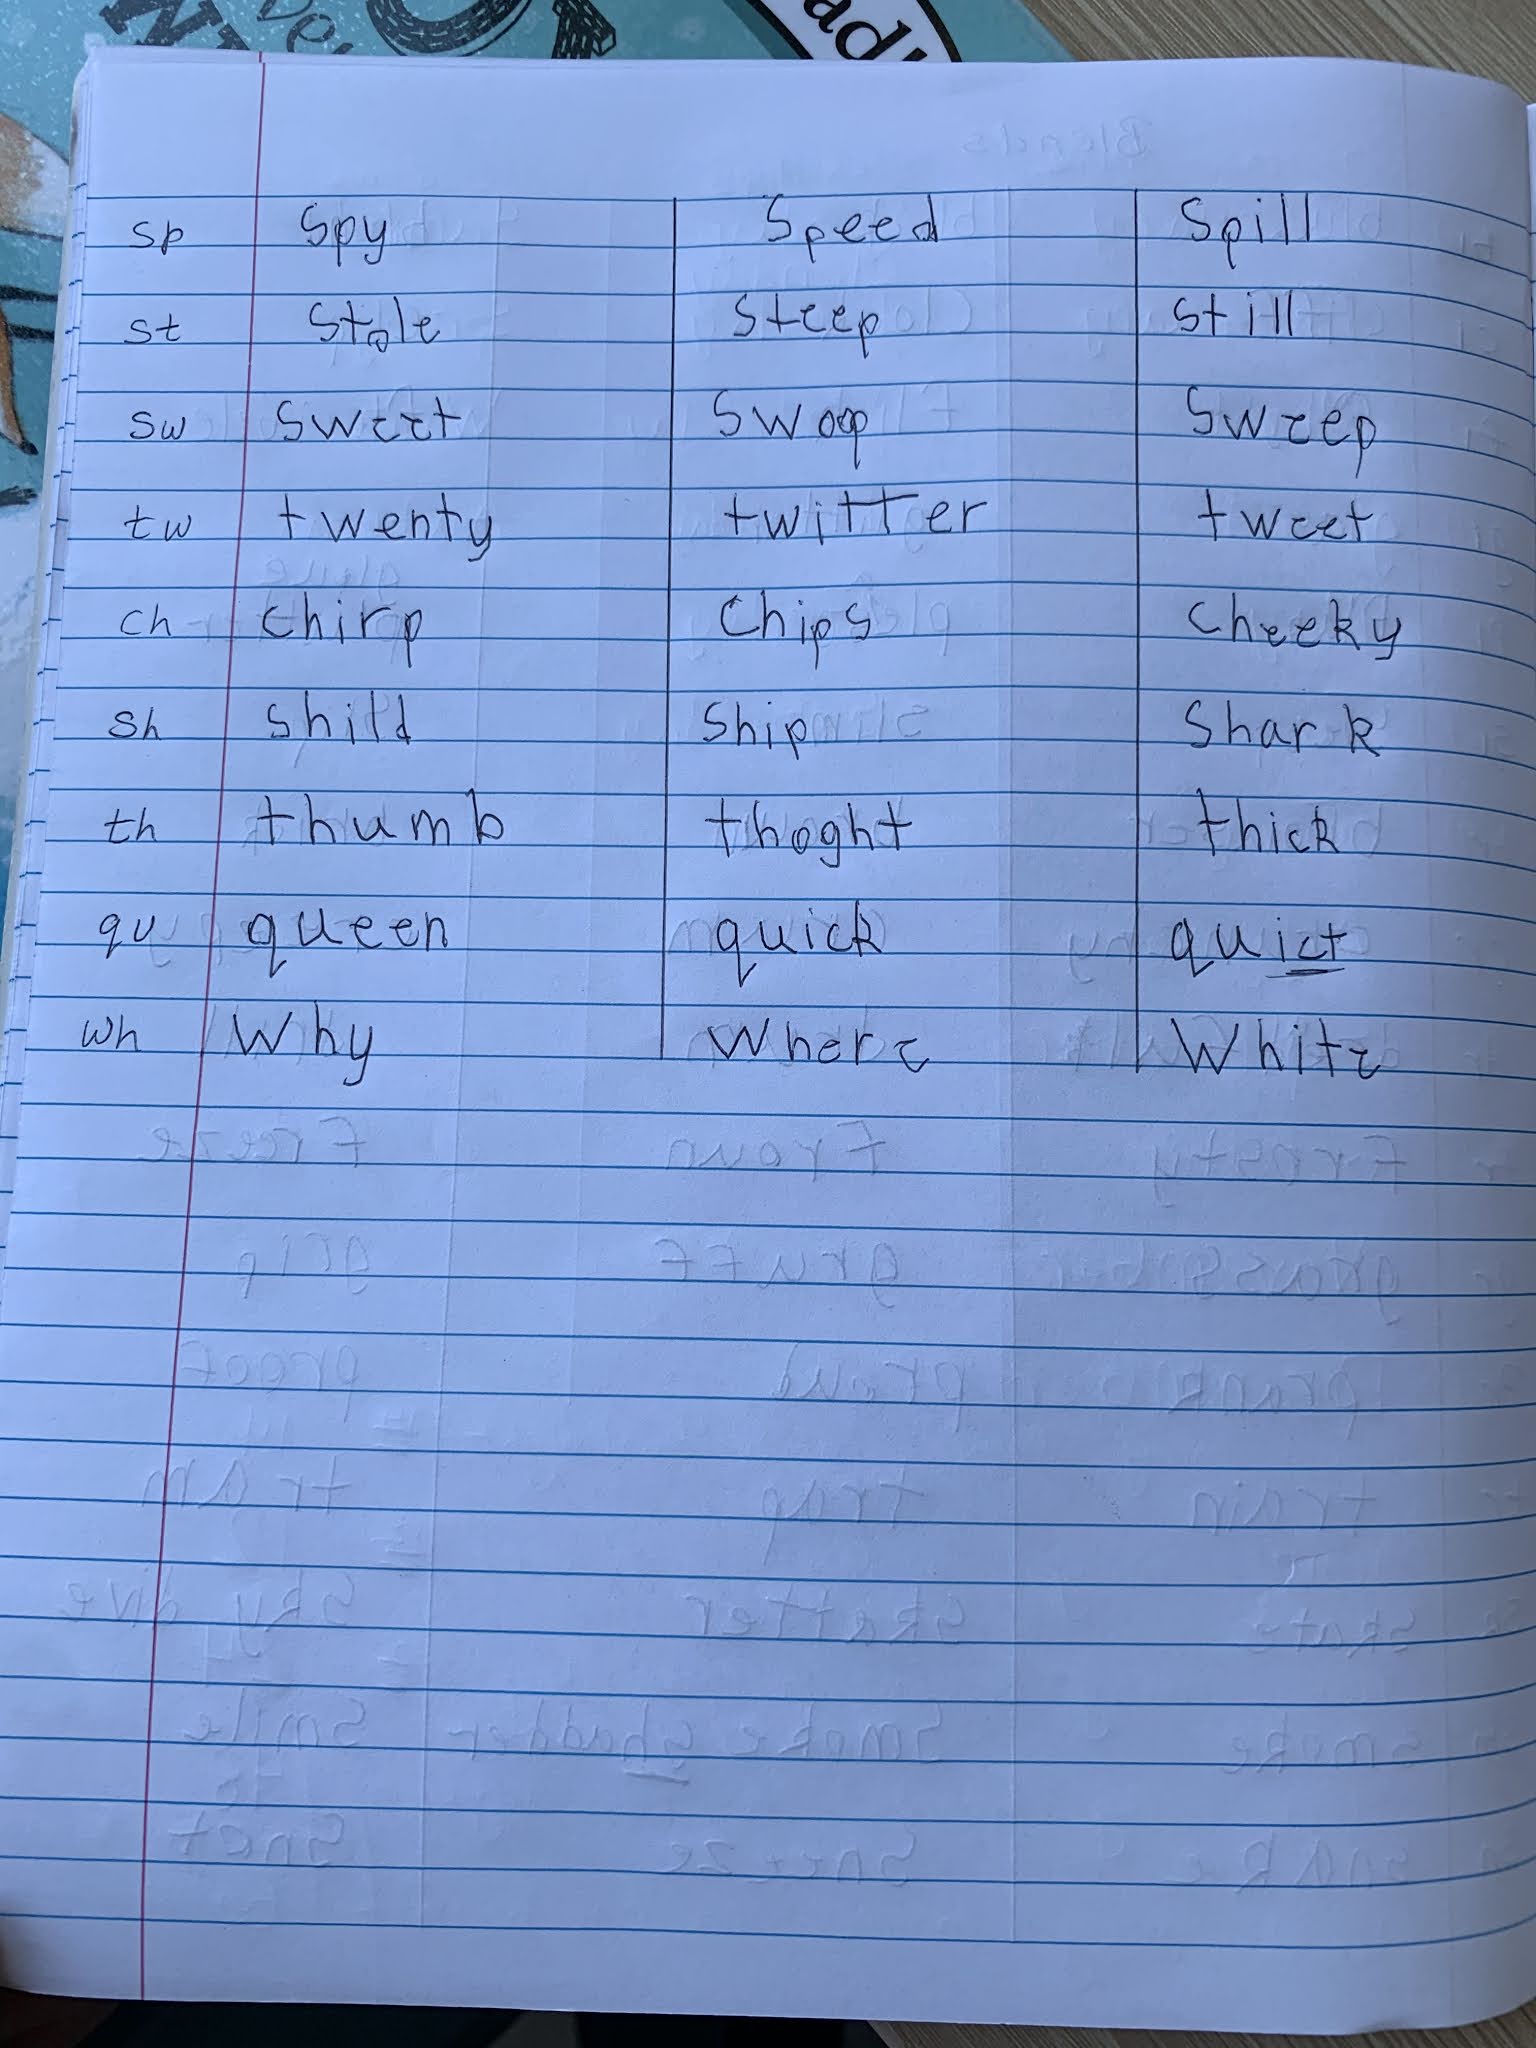 sp spy Speed Spill
st stole steep still
sw sweet swoop sweep
tw twenty twitter tweet
ch chirp Chips Cheeky
sh shild Ship Shark
th thumb thoght thick
qu queen quick quiet
wh Why Where White